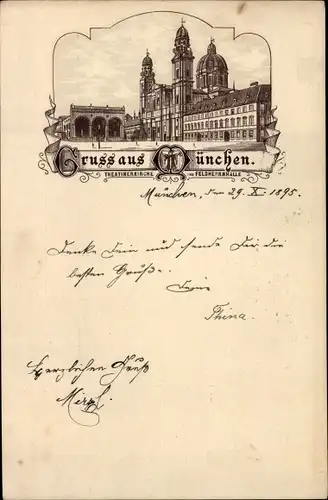 Gruss aus München.
THEATINERKIRCHE U. FELDHERRNHALLE
München, den 29. X. 1895.
Denke Dein und sende Dir die
besten Grüße.
Deine
Thina.
Herzlichen Gruß